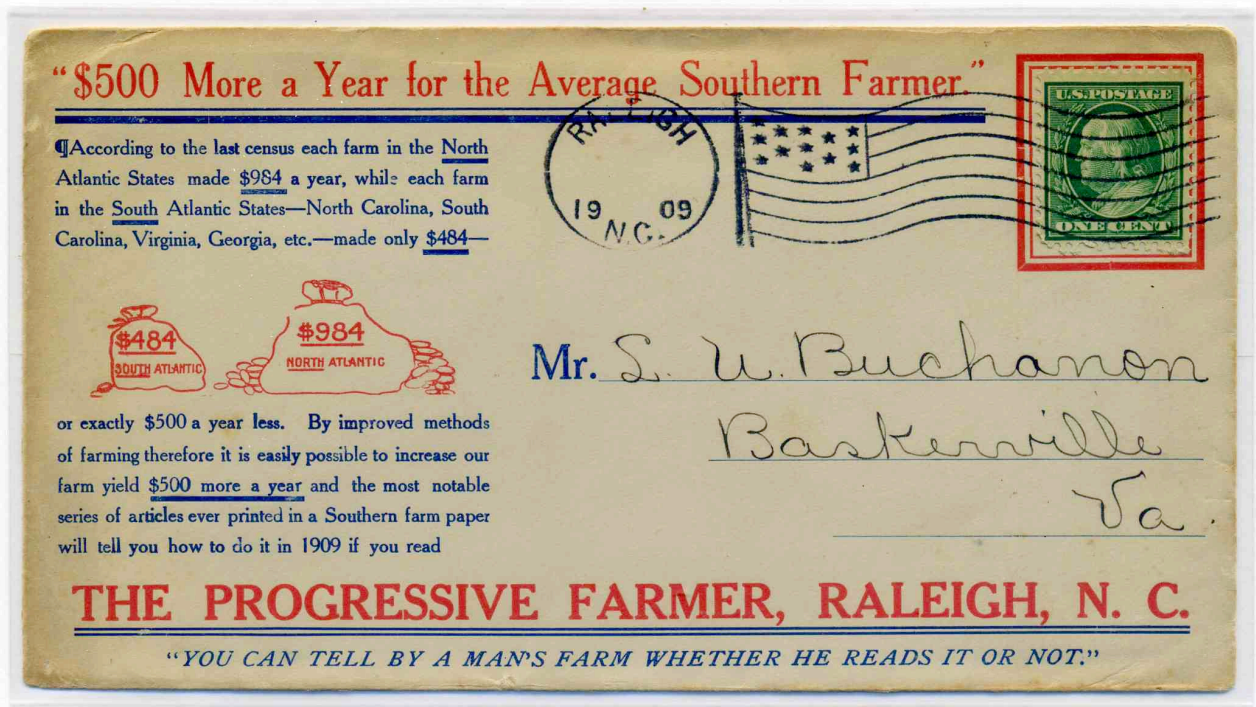 "$500 More a Year for the Average Southern Farmer."
¶According to the last census each farm in the North
Atlantic States made $984 a year, while each farm
in the South Atlantic States—North Carolina, South
Carolina, Virginia, Georgia, etc.—made only $484—
$484
SOUTH ATLANTIC
$984
NORTH ATLANTIC
or exactly $500 a year less. By improved methods
of farming therefore it is easily possible to increase our
farm yield $500 more a year and the most notable
series of articles ever printed in a Southern farm paper
will tell you how to do it in 1909 if you read
RALEIGH
19 09
N.C.
U.S. POSTAGE
ONE CENT
Mr. S. U. Buchanon
Baskerville
Va.
THE PROGRESSIVE FARMER, RALEIGH, N. C.
"YOU CAN TELL BY A MAN'S FARM WHETHER HE READS IT OR NOT."